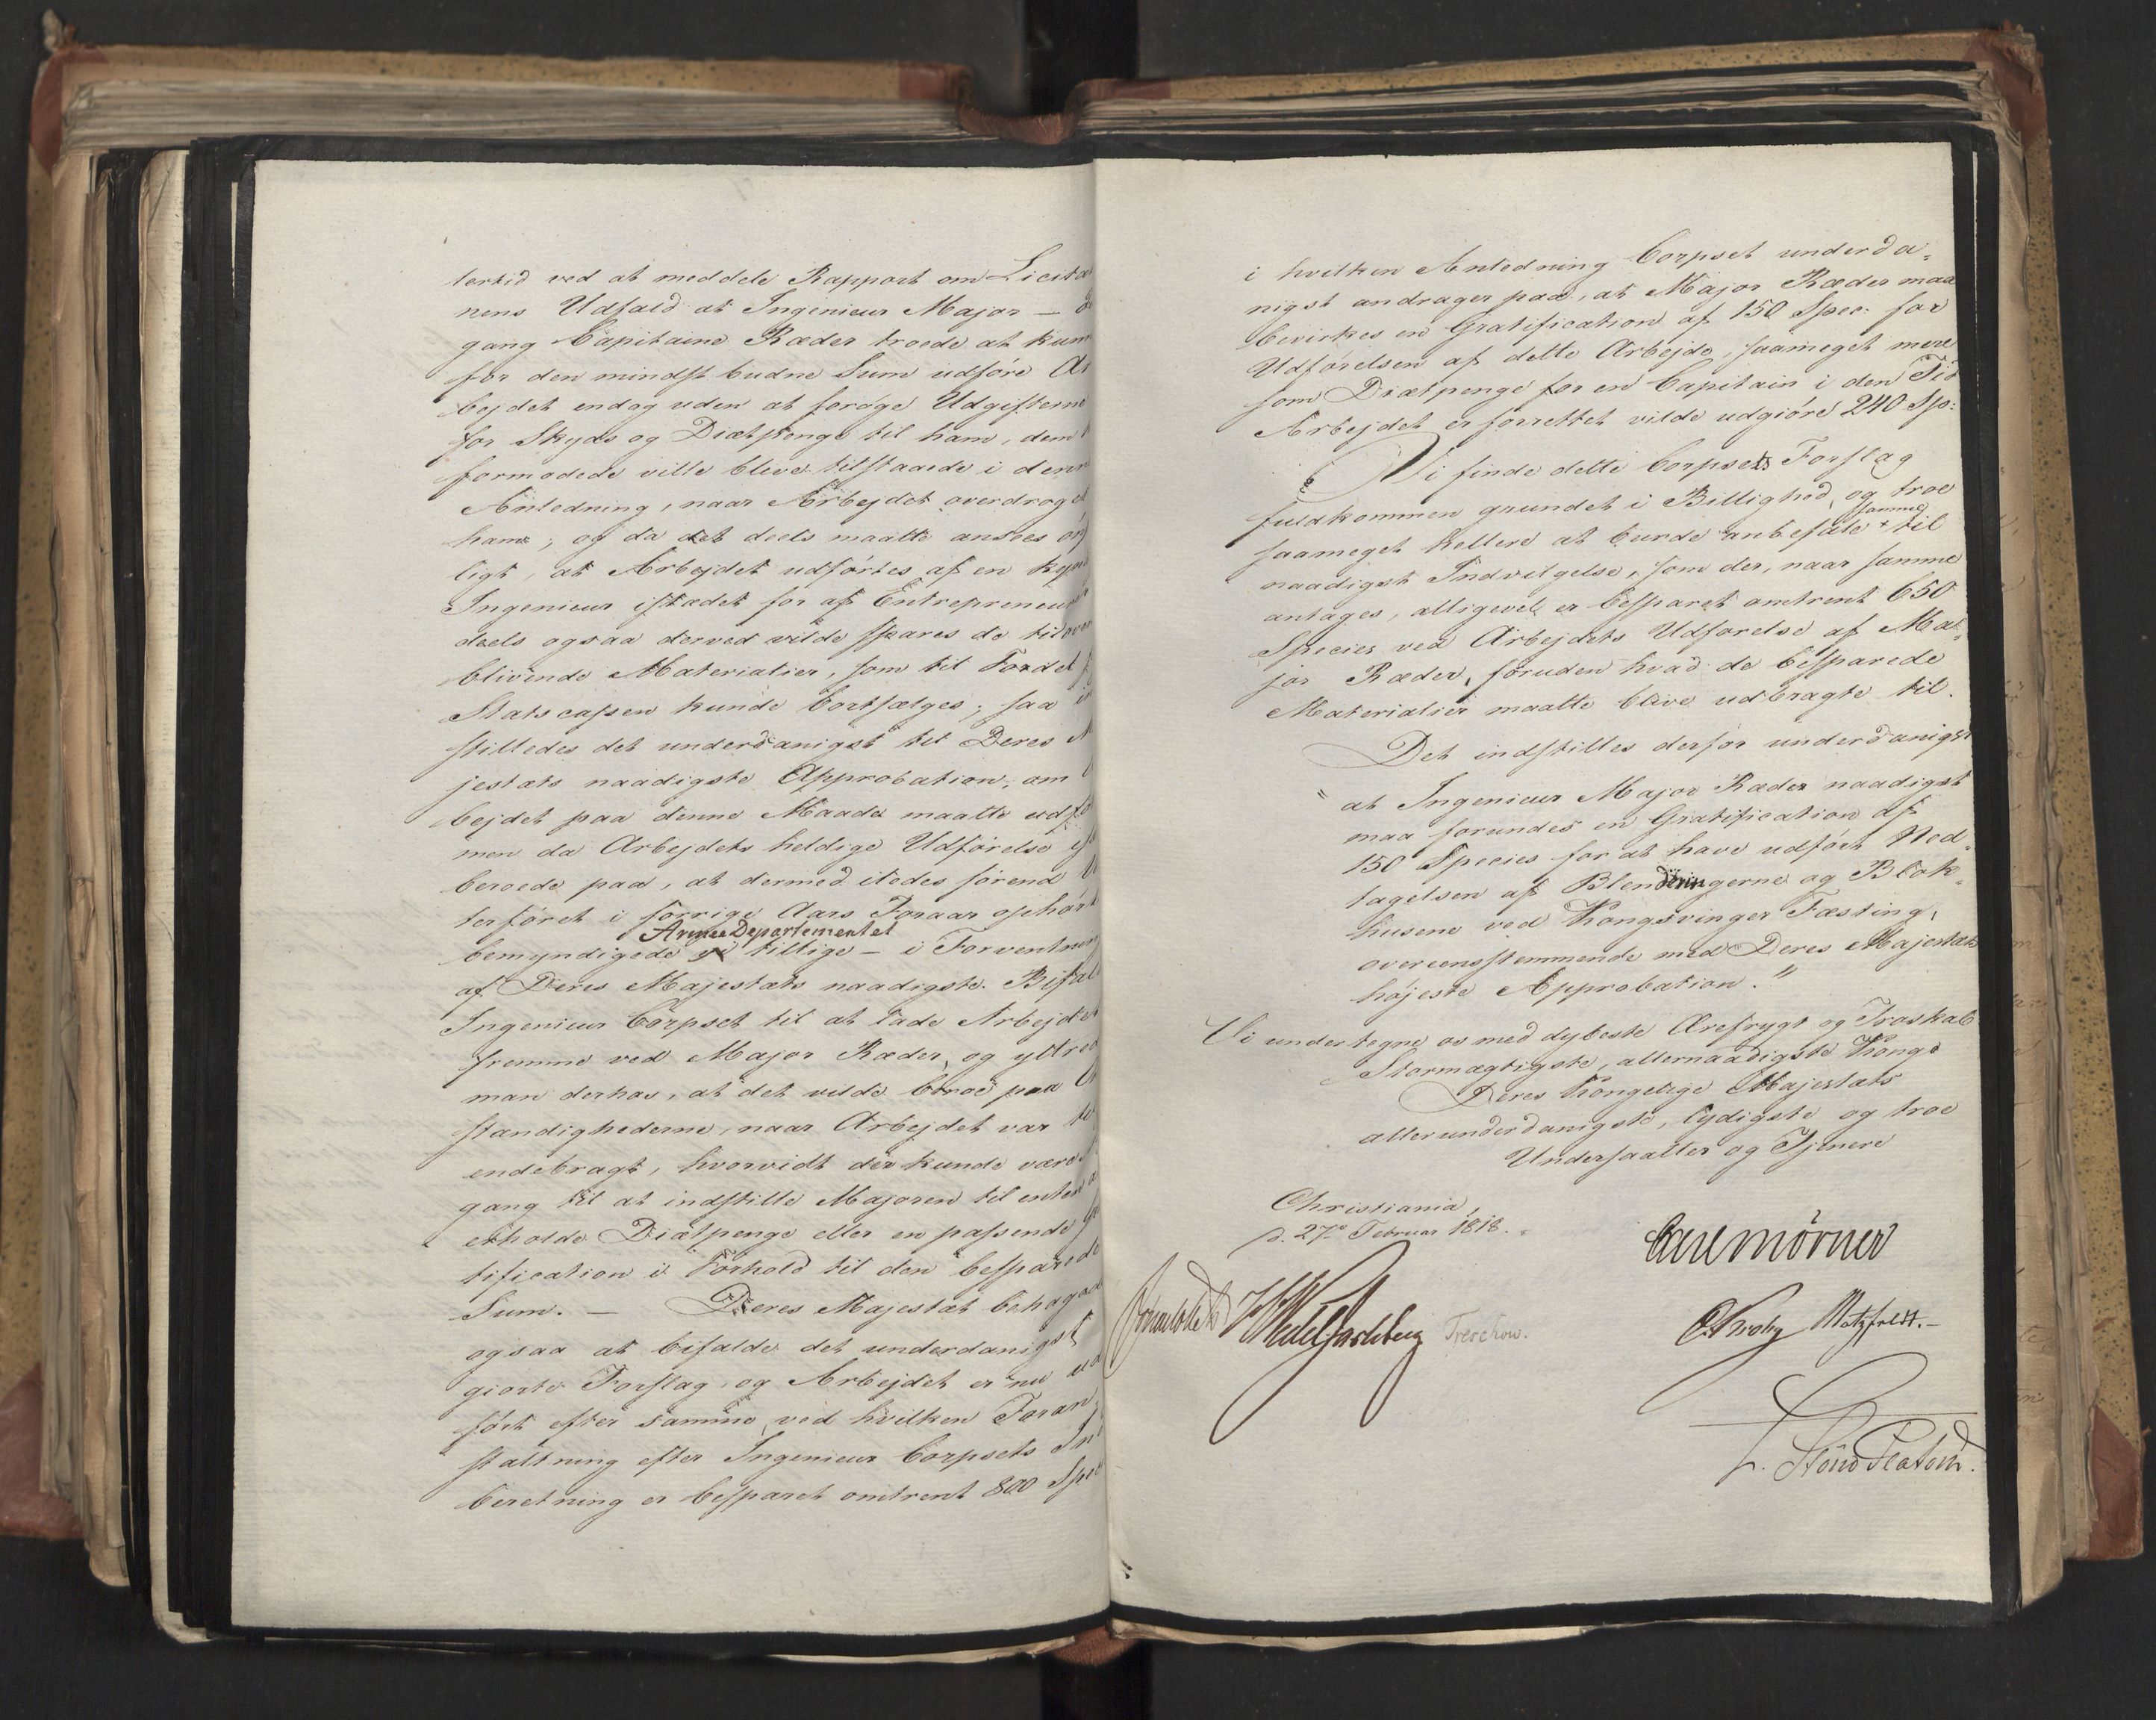 lertid ved at meddele Rapport om Licita
nens Udfald at Ingenieur Major –
gang Capitaine Ræder troede at kun
for den mindst budne Sum udføre Ar
bejdet endog uden at forøge Udgifterne
for Skyds og Diætpenge til ham, dem
formodede ville blive tilstaaede i denn
Anledning, naar Arbejdet overdroges
ham; og da det deels maatte ansees øn
ligt, at Arbejdet udførtes af en kyn
Ingenieur istædet for af Entrepreneur
deels ogsaa derved vilde spares de tilover
blivende Materialier, som til Fordel f
Statscassen kunde bortsælges; saa in
stilledes det underdanigst til Deres M
jestæts naadigste Approbation, om
bejdet paa denne Maade maatte udfø
men da Arbejdets heldige Udførelse
beroede paa, at dermed iledes førend
terføret i forrige Aars Foraar ophørt
ArmeeDepartementet
bemyndigede tillige – i Forventning
af Deres Majestæts naadigste Bifald
Ingenieur Corpset til at lade Arbejdet
fremme ved Major Ræder, og yttred
man derhos, at det vilde beroe paa
stændighederne, naar Arbejdet var
endebragt, hvorvidt der kunde være
gang til at indstille Majoren til enten
erholde Diætpenge eller en passende
tification i Forhold til den besparede
Sum. – Deres Majestæt behaged
ogsaa at bifalde det underdanigst
giorte Forslag, og Arbejdet er nu ud
ført efter samme, ved hvilken Foran
staltning efter Ingenieur Corpsets In
beretning er besparet omtrent 800 Spe
i hvilken Anledning Corpset underda-
nigst andrager paa, at Major Ræder maa
bevirkes en Gratification af 150 Spec: for
Udførelsen af dette Arbejde, saameget mere
som Diætpenge for en Capitain i den Tid
Arbejdet er forrettet vilde udgiøre 240 Sp:
Vi finde dette Corpsets Forslag
fuldkommen grundet i Billighed, og troe
samme
saameget hellere at burde anbefale + til
naadigst Indvilgelse, som der, naar samme
antages, alligevel er besparet omtrent 650
Species ved Arbejdets Udførelse af Ma-
jor Ræder, foruden hvad de besparede
Materialier maatte blive udbragte til.
Det indstilles derfor underdanigst
" at Ingenieur Major Ræder naadigst
maa forundes en Gratification af
150 Species for at have udført Ned-
tagelsen af Blenderingerne og Blok-
husene ved Kongsvinger Fæstning,
overeensstemmende med Deres Majestæts
højeste Approbation."
Vi undertegne os med dybeste Ærefrygt og Troskab
Stormægtigste, allernaadigste Konge
Deres Kongelige Majestæts
allerunderdanigste, lydigste og troe
Undersaatter og Tjenere
Christiania,
d. 27de Februar 1818.
Carl Mörner
Sommerfeldt HWedel Jarlsberg Treschow.
CKrohg Motzfeldt.
L. Stoud Platou.